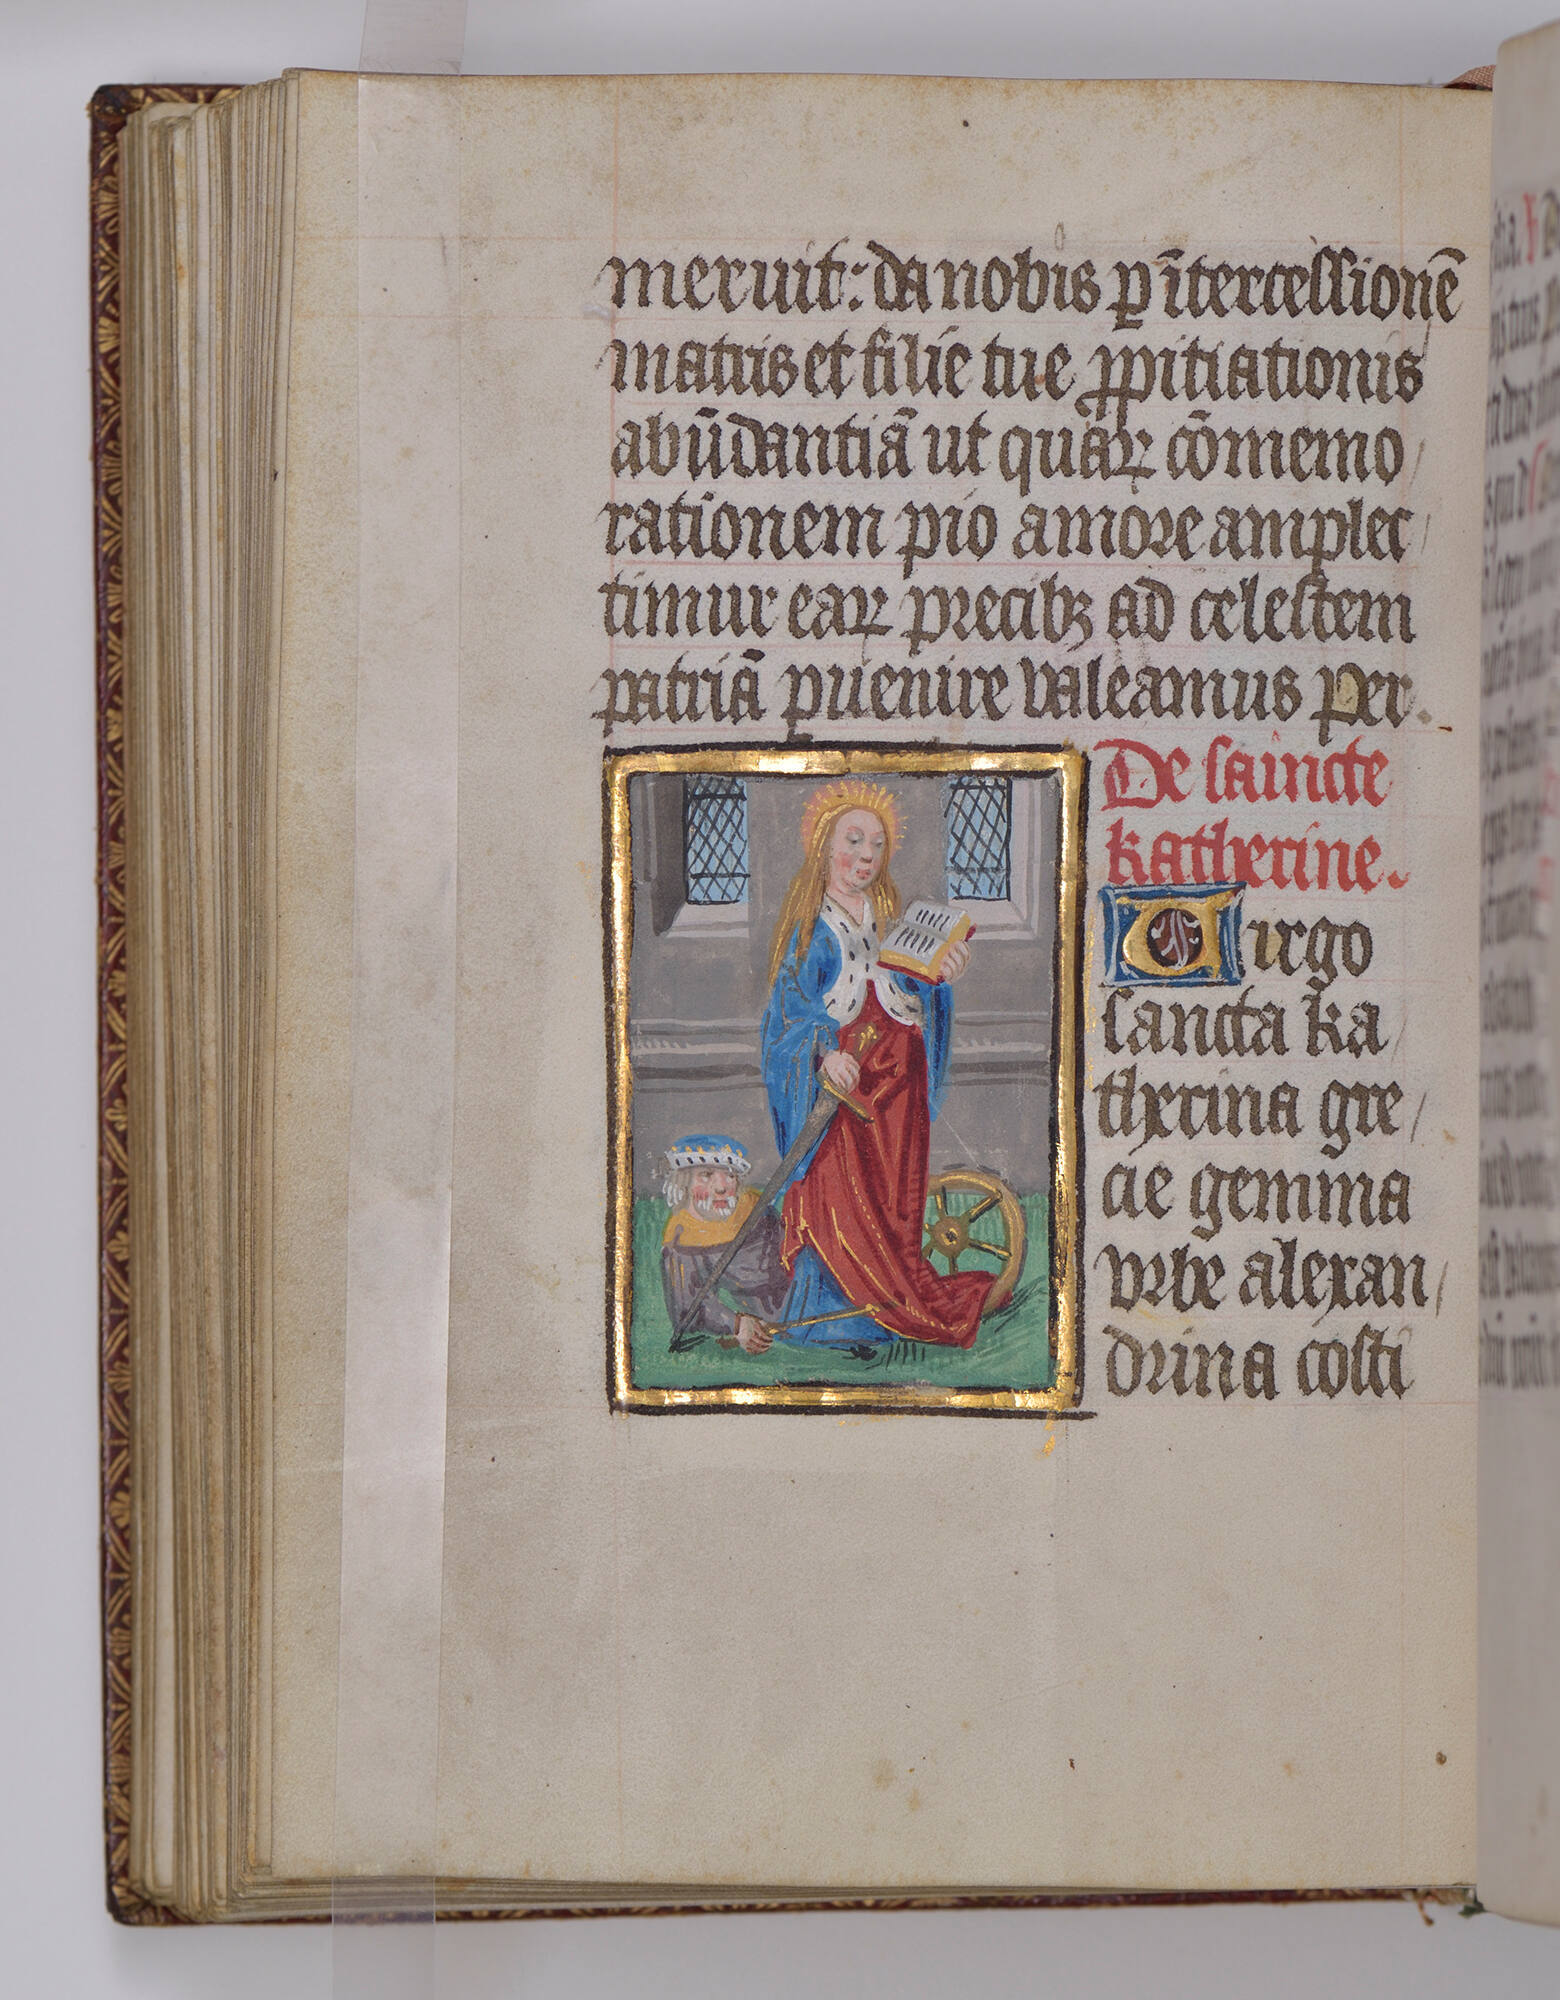 meruit: da nobis ꝑ ītercessionē
matris et filie tue ꝓpitiationis
abūdantiā ut quaꝝ cōmemo
rationem pio amore amplec
timur eaꝝ precibꝫ ad celestem
patriā ꝑuenire valeamus per.
De saincte
katherine.
Uirgo
sancta ka
therina gre
cie gemma
vrbe alexan
drina costi